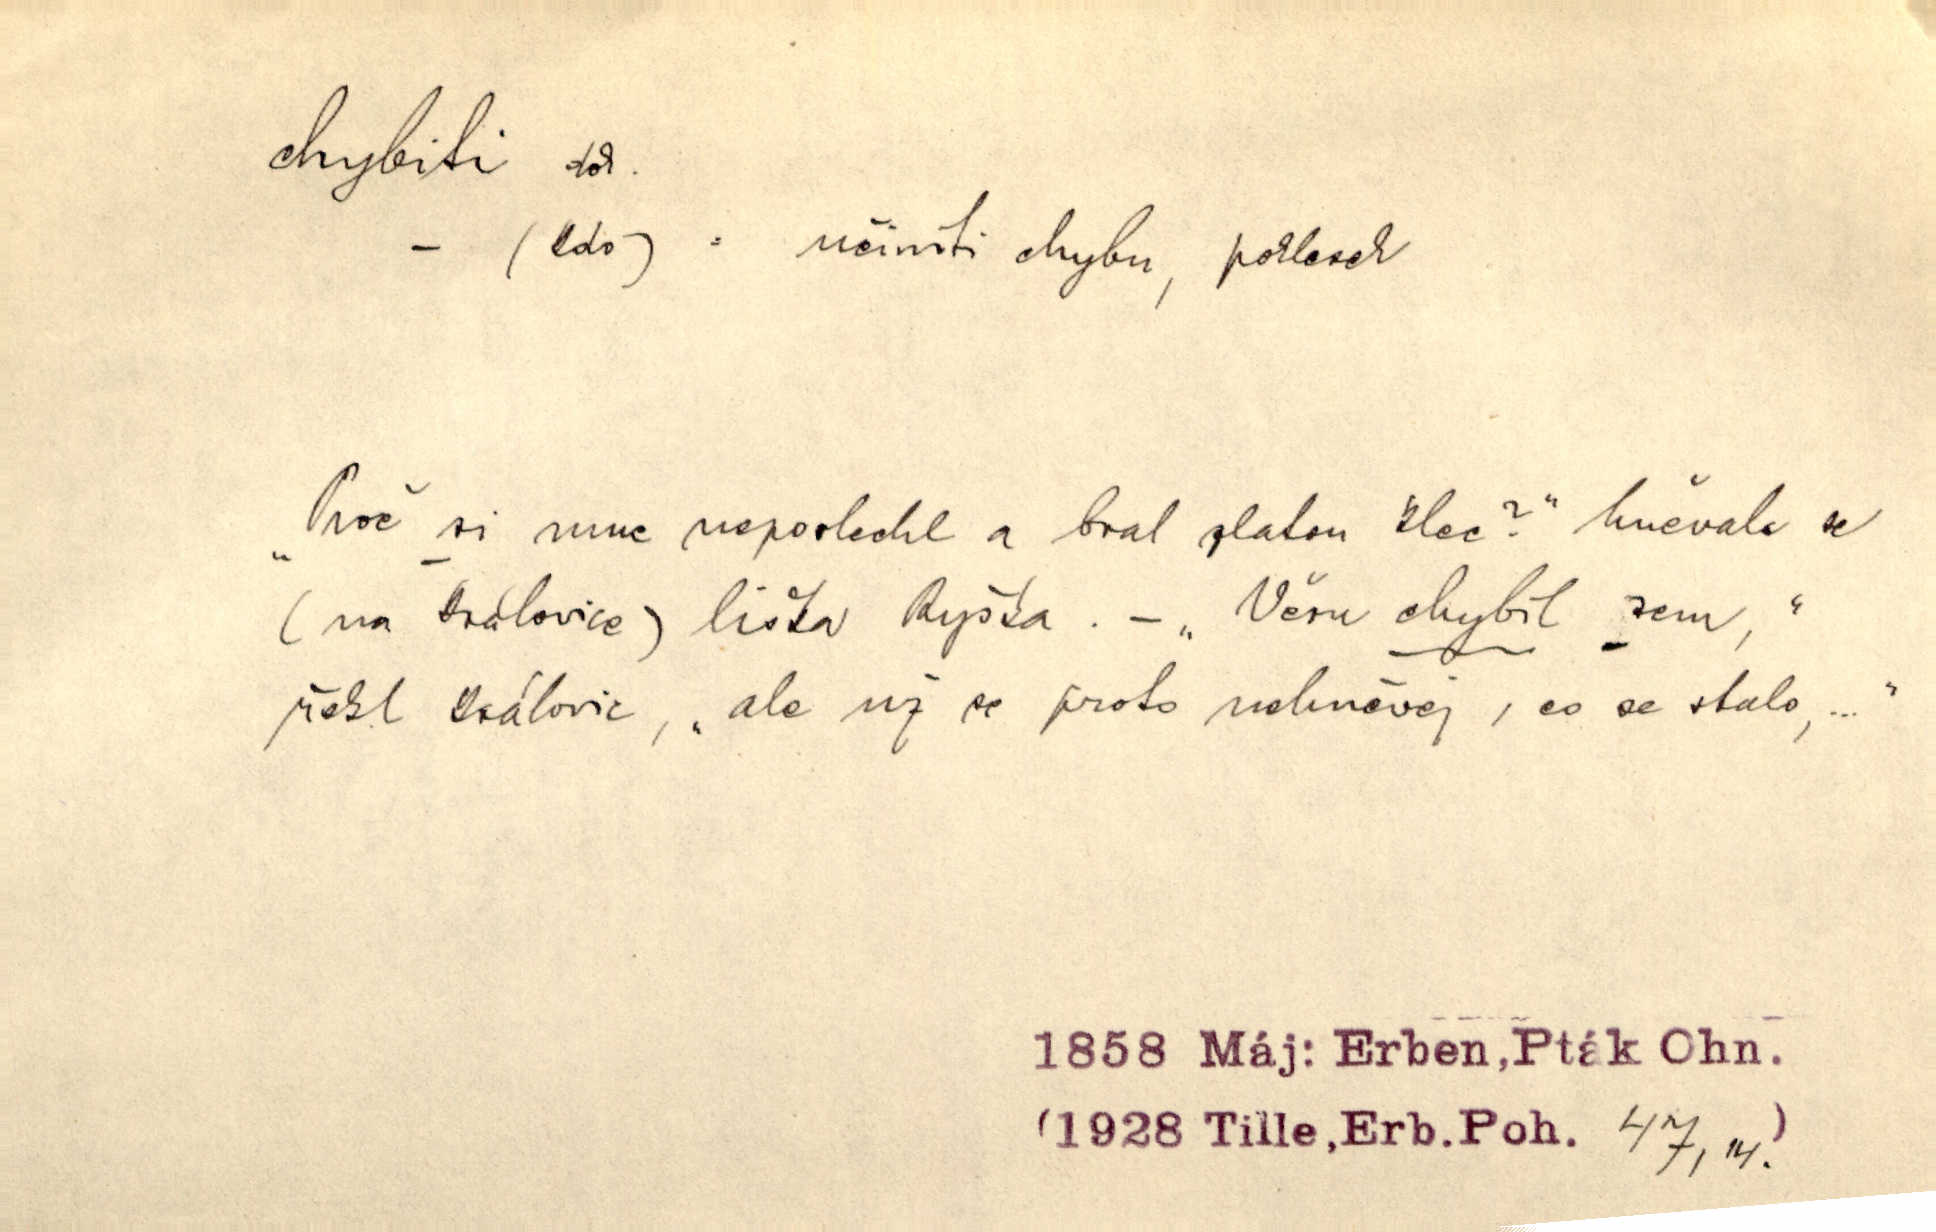 chybiti dok.
– (kdo) : učiniti chybu, poklesek
„Proč si mne neposlechl a bral zlatou klec?“ hněvala se
(na královice) liška Ryška. – „Věru chybil sem,“
řekl královic, „ale už se proto nehněvej, co se stalo,...“
1858 Máj: Erben,Pták Ohn.
(1928 Tille,Erb.Poh. 47, 14.)